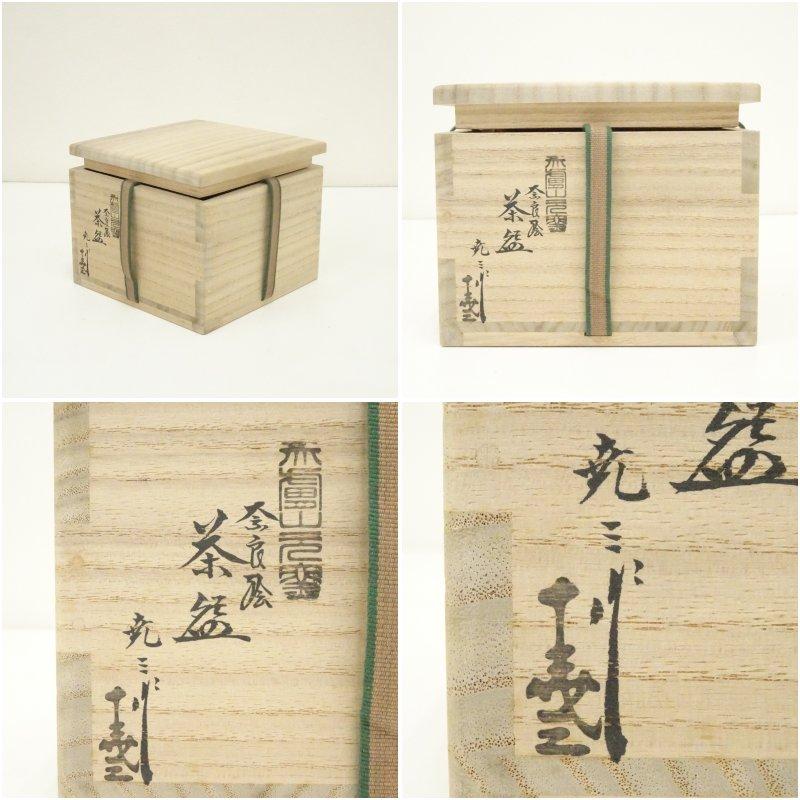 赤膚山元窯
奈良絵
茶盌
尭三
赤膚山元窯
奈良絵
茶盌
尭三
赤膚山元窯
奈良絵
茶盌
尭三
盌
尭三